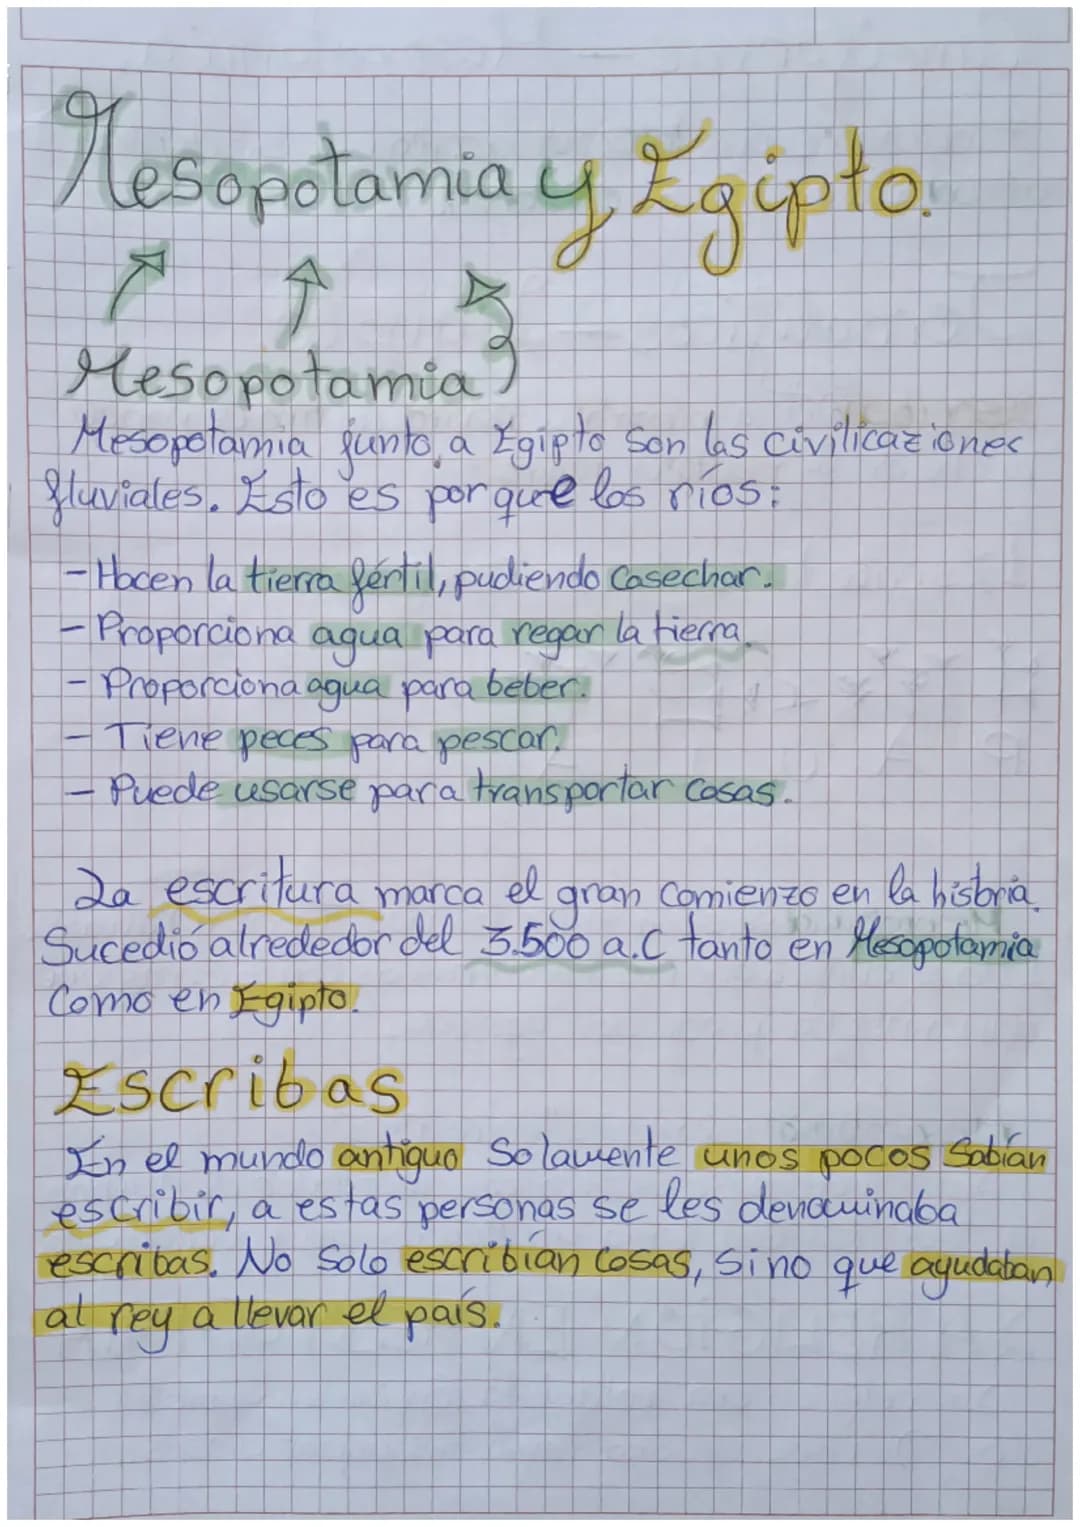 Mesopotamia y Egipto.
Mesopotamia
Mesopotamia junto a Egipto son las civilicaziones
fluviales. Esto es porque los ríos:
- Hacen la tierra fértil, pudiendo cosechar.
- Proporciona agua para regar la tierra.
- Proporciona agua para beber.
- Tiene peces para pescar.
- Puede usarse para transportar cosas.
La escritura marca el gran comienzo en la historia.
Sucedió alrededor del 3.500 a.C tanto en Mesopotamia
como en Egipto.
Escribas
En el mundo antiguo solamente unos pocos sabían
escribir, a estas personas se les denominaba
escribas. No solo escribían cosas, sino que ayudaban
al rey a llevar el país.